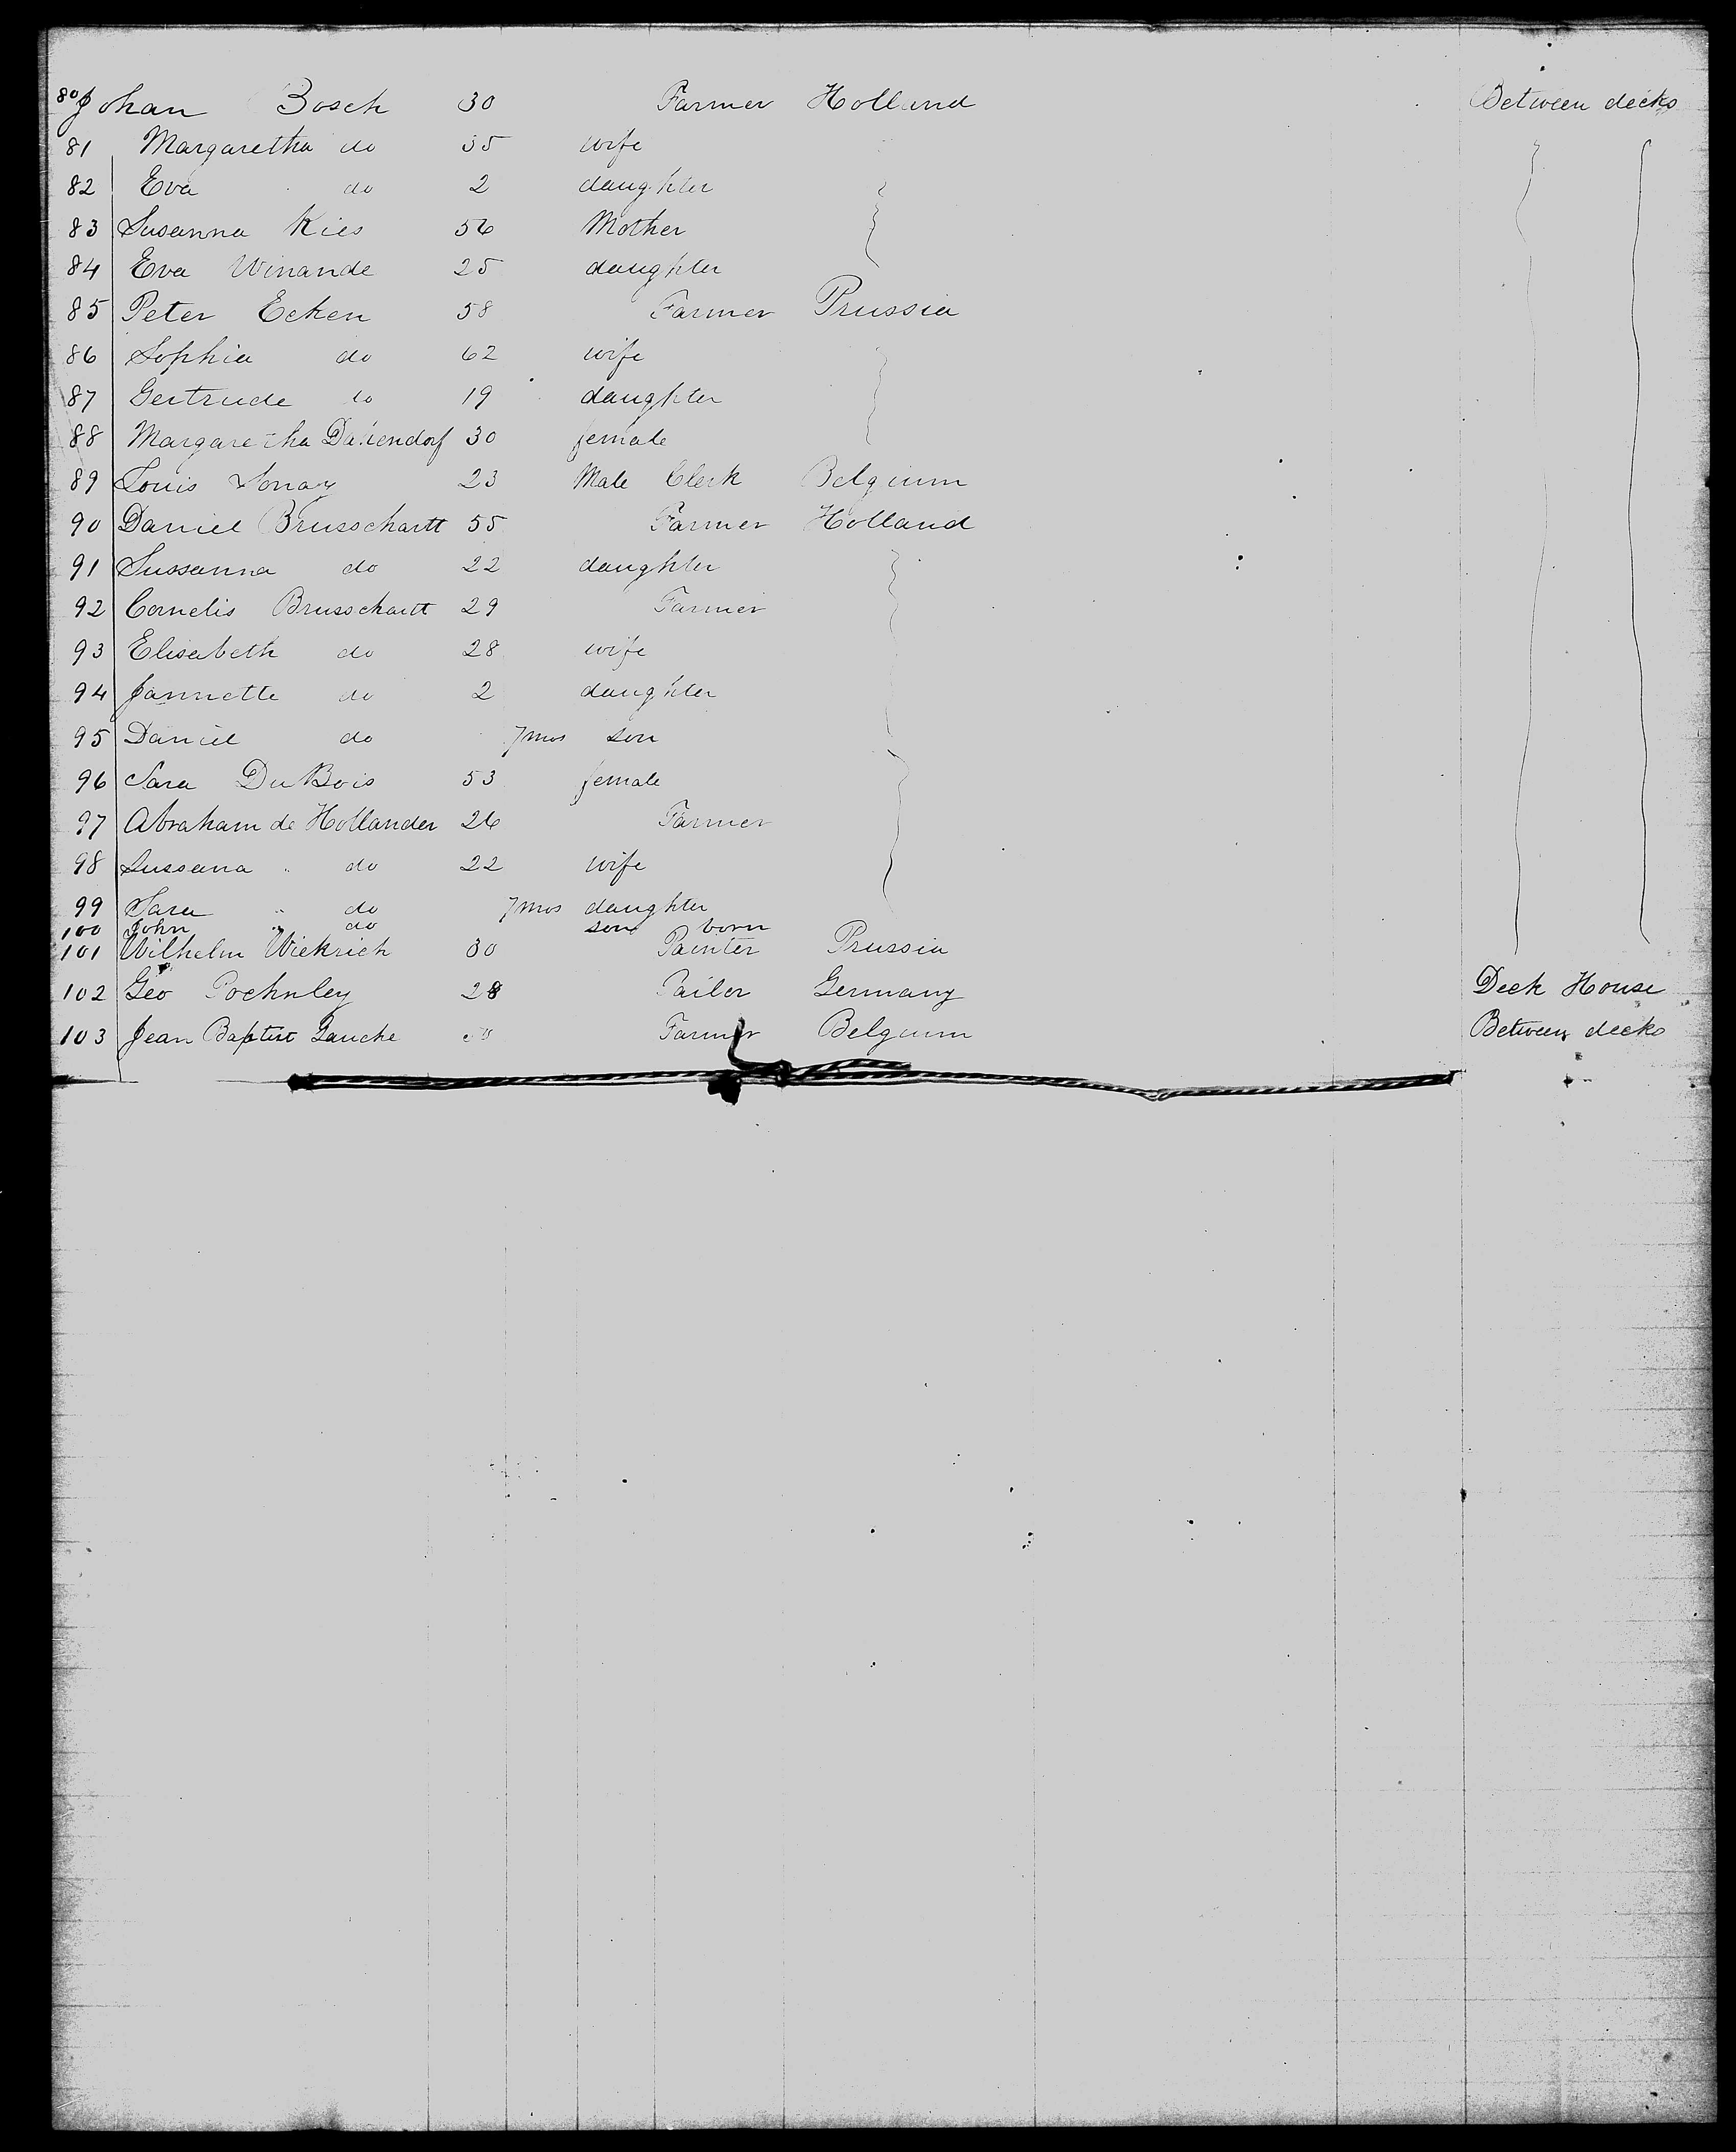 80 Johan Bosch 30 Farmer Holland Between decks
81 Margaretha do 35 wife
82 Eva do 2 daughter
83 Susanna Kies 56 Mother
84 Eva Winande 25 daughter
85 Peter Ecken 58 Farmer Prussia
86 Sophia do 62 wife
87 Gertrude do 19 daughter
88 Margaretha 30 female
89 Louis 23 Male Clerk Belgium
90 Daniel Brusschartt 55 Farmer Holland
91 Sussanna do 22 daughter
92 Cornelis Brusschartt 29 Farmer
93 Elisabeth do 28 wife
94 Jannette do 2 daughter
95 Daniel do 7 mos son
96 Sara Du Bois 53 female
97 Abraham de Hollander 26 Farmer
98 Sussana " do 22 wife
99 Sara " do 7 mos daughter
100 John " do son born
101 Wilhelm Wiekrich 30 Painter Prussia
102 Geo 28 Germany Deck House
103 Jean Baptist Farmer Belgium Between decks